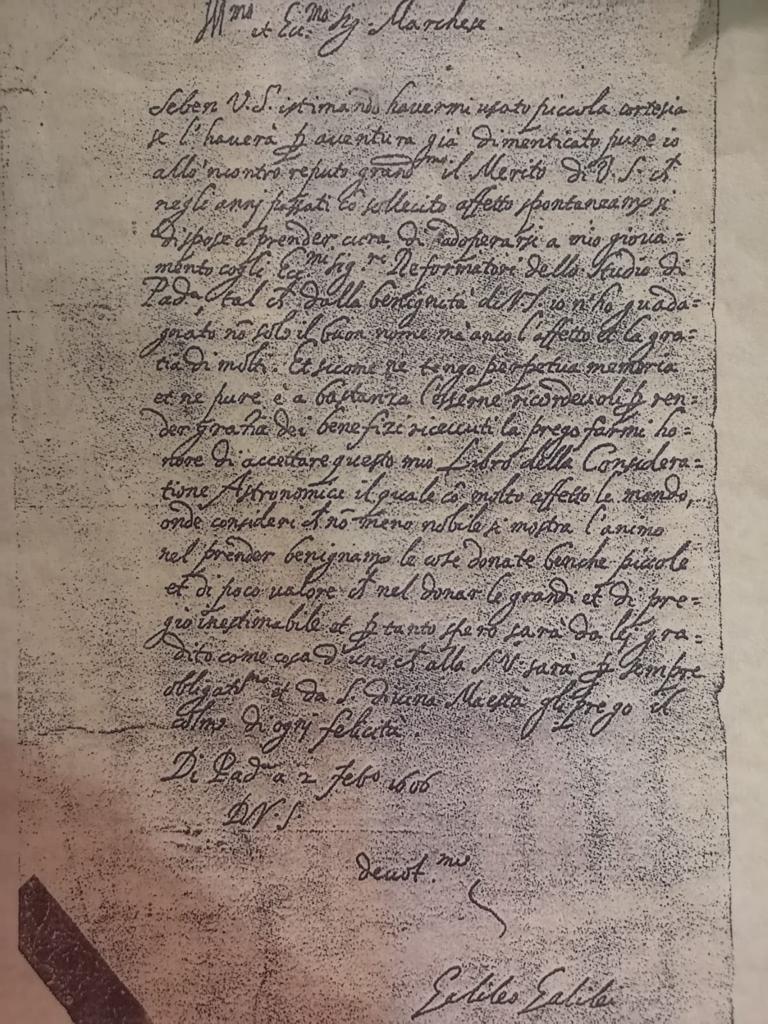 Ill.mo et Ecc.mo Sig. Marchese.
Seben V.S. istimando havermi usato piccola cortesia
se l'haverà p aventura già dimenticato pure io
allo'ncontro reputo grand.mo il Merito di V.S. ch
negli anni passati cō sollecito affetto spontaneam.e si
dispose à prender cura di adoperarsi a mio giova=
mento cogli Ecc.mi Sig.re Reformatori dello studio di
Pad.a, tal ch dalla benignità di V.S. io n'ho guada=
gnato nō solo il buon nome mà anco l'affetto et la gra=
tia di molti. Et sicome ne tengo perpetua memoria
et ne pure è a bastanza l'esserne ricordevoli p ren=
der grazia dei benefizi riceuuti la prego farmi ho=
nore di accettare questo mio Libro della Considera=
tione Astronomica il quale cō molto affetto le mando,
onde consideri ch nō meno nobile si mostra l'animo
nel prender benignam.e le cose donate benche piccole
et di poco valore ch nel donar le grandi et di pre=
gio inestimabile et p tanto spero sarà da lei gra=
dito come cosa d'uno ch alla S.V. sarà p sempre
obligatis.mo et da S. Divina Maestà gli prego il
colmo di ogni felicità.
Di Pad.a a 2 Feb.o 1606
D V. S.
deuot.mo
Galileo Galilei